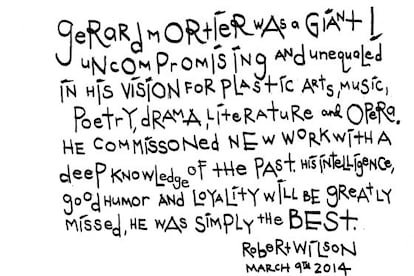 GERARD MORTIER WAS A GIANT!
UNCOMPROMISING AND unequaled
IN HIS VISION FOR PLASTIC ARTS, MUSIC,
POETRY, DRAMA, LITERATURE and OPERA.
HE COMMISSONED NEW WORK WITH A
DEEP KNOWLEDGE OF THE PAST. HIS INTELLIGENCE,
GOOD HUMOR AND LOYALITY WILL BE GREATLY
MISSED, HE WAS SIMPLY THE BEST.
ROBERT WILSON
MARCH 9TH 2014